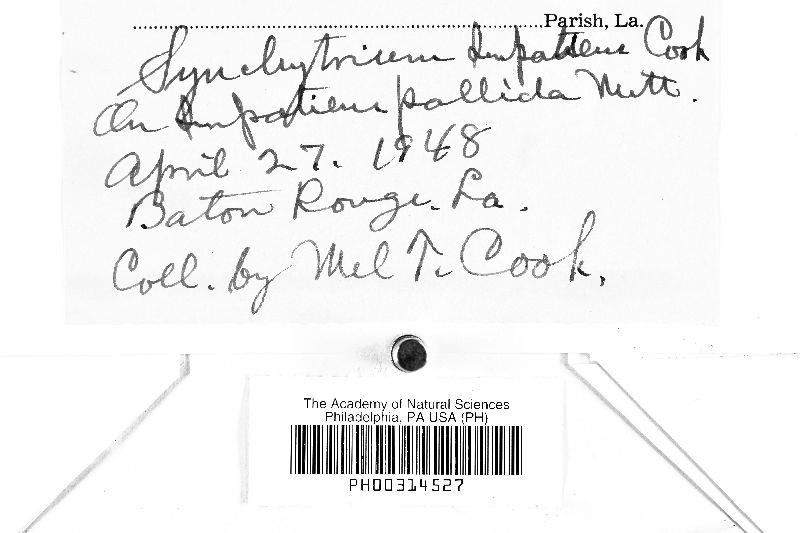 Parish, La.
Synchytrium Impatiens Cook
On Impatiens pallida Nutt.
April 27. 1948
Baton Rouge. La.
Coll. by Mel T. Cook.
The Academy of Natural Sciences
Philadelphia, PA USA (PH)
PH00314527